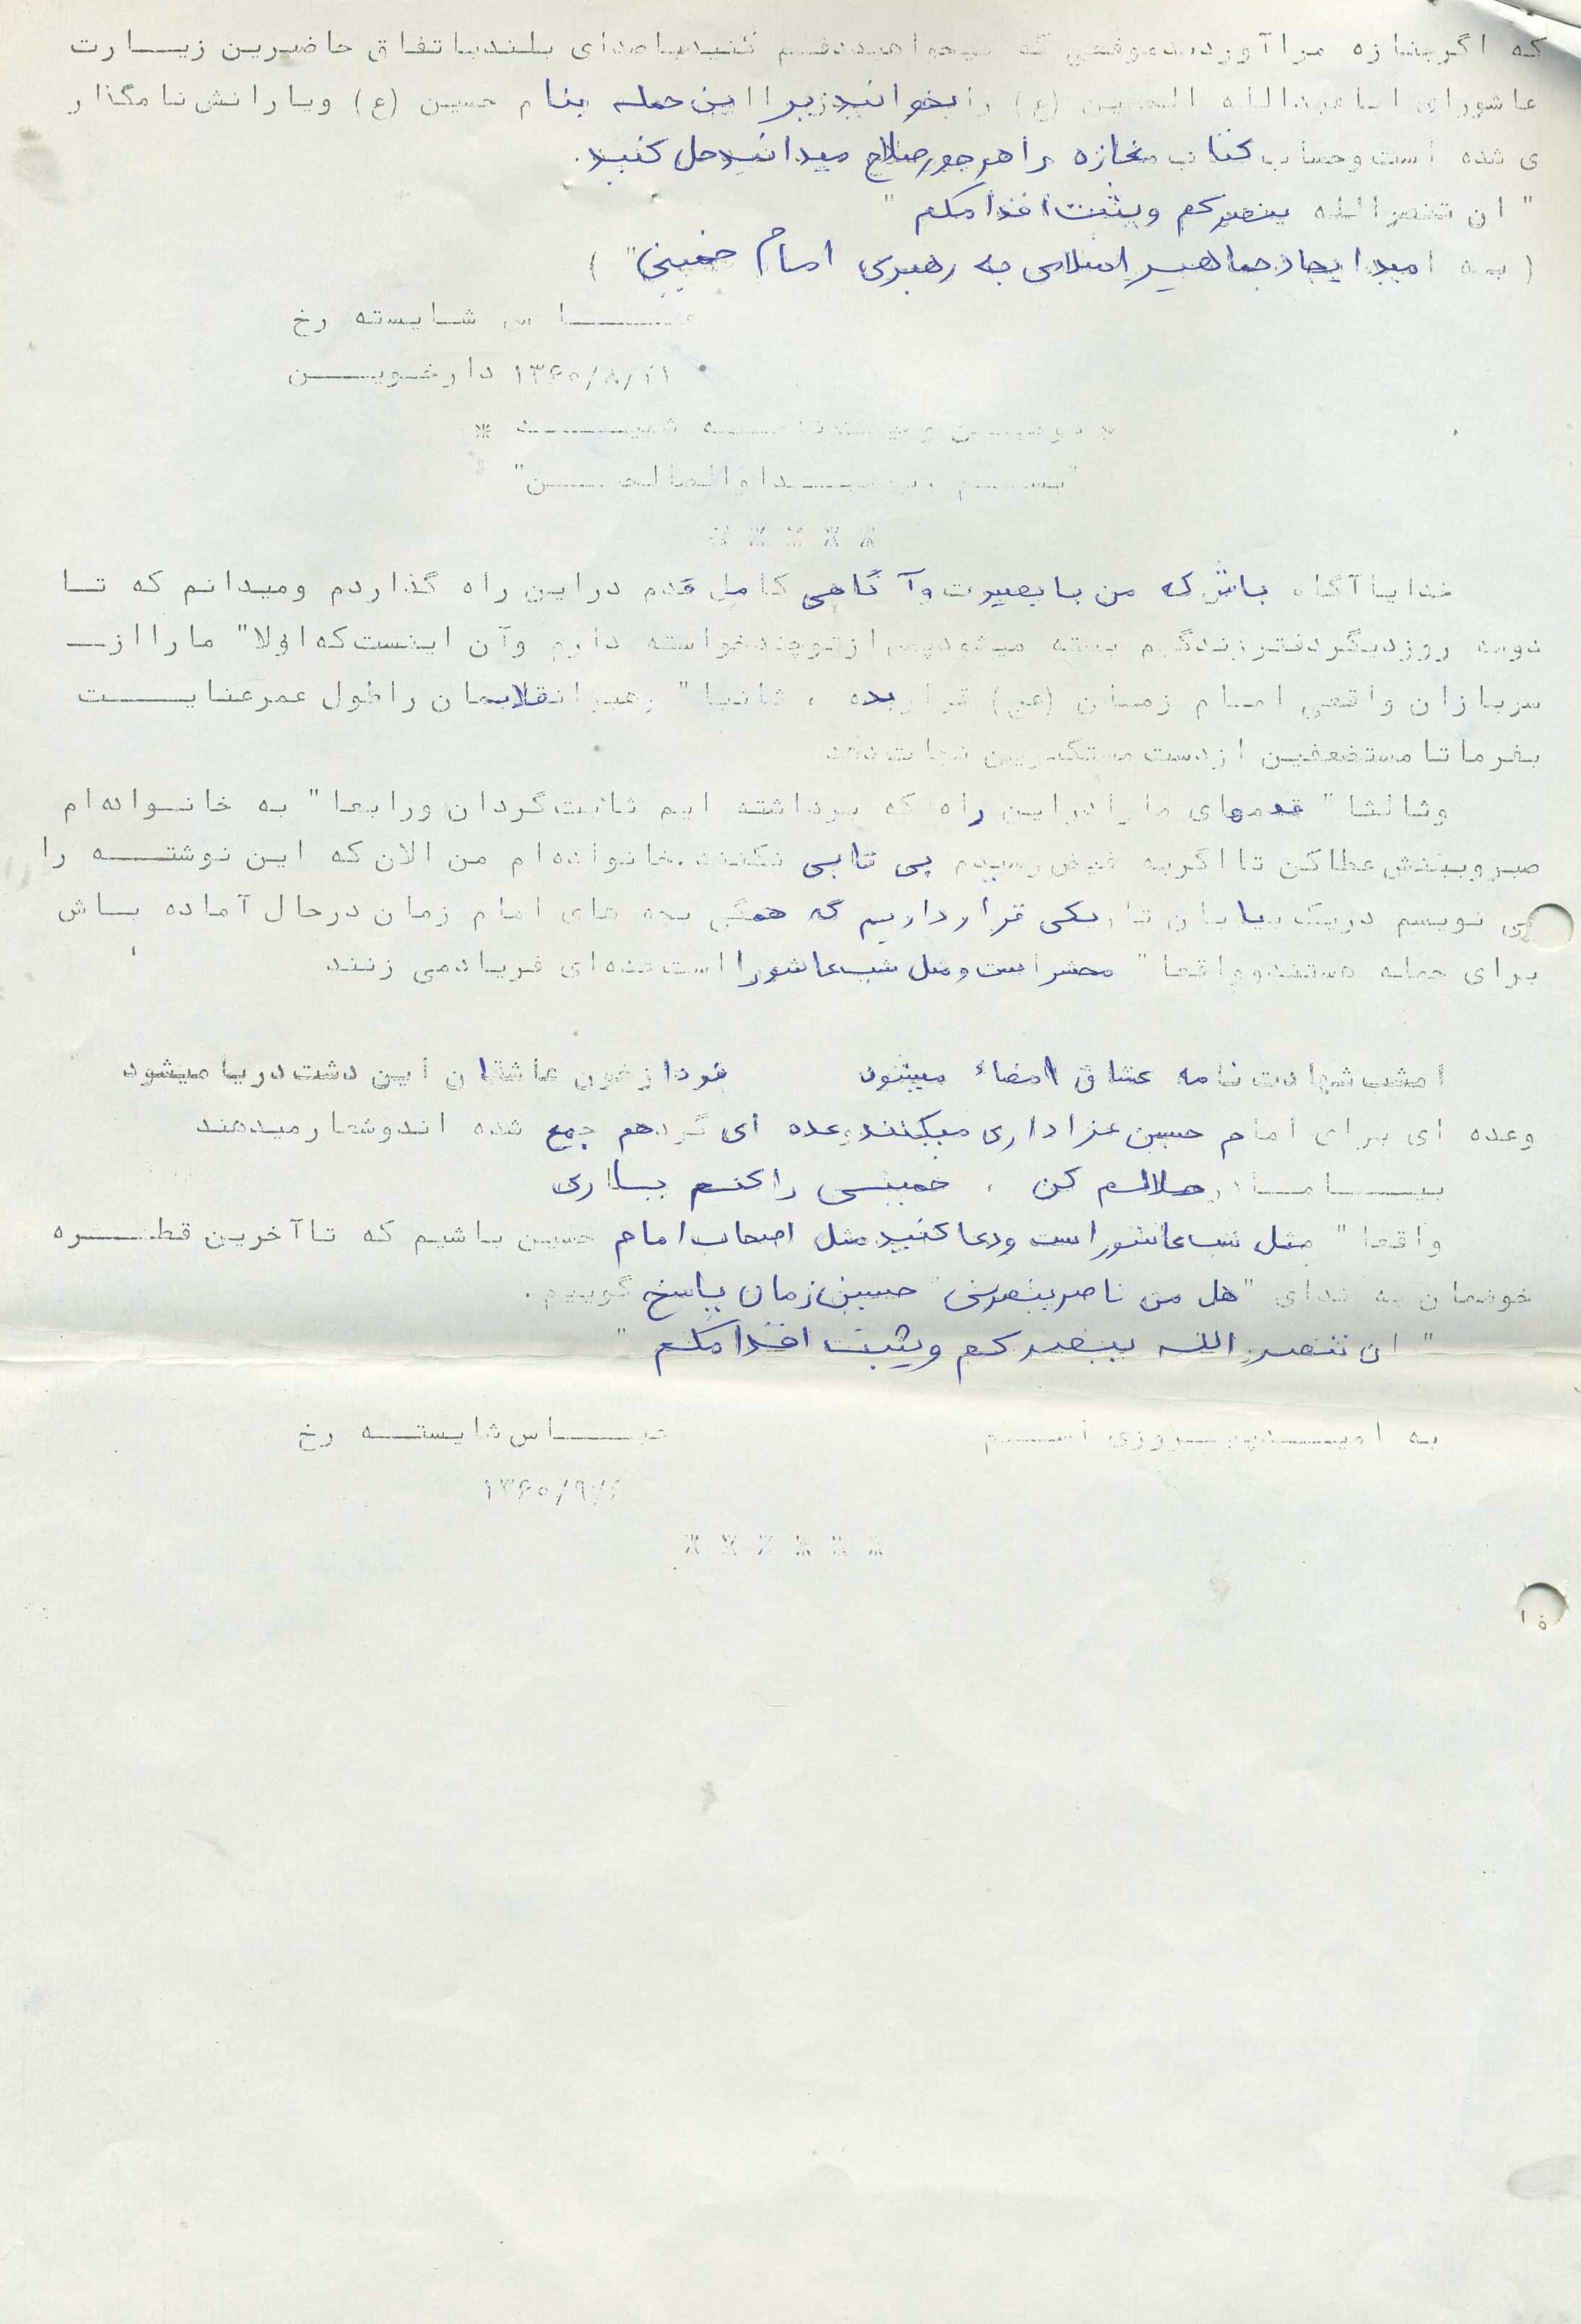 که اگر جنازه مرا آوردند موقعی که میخواهید دفنم کنید با صدای بلند با تفاق حاضرین زیارت
عاشورای ابا عبدالله الحسین (ع) را بخوانید زیرا این حمله بنام حسین (ع) و یارانش نامگذار
ی شده است و حساب کتاب مغازه را هر جور صلاح میدانید حل کنید.
" ان تنصرالله ینصرکم ویثبت اقدامکم "
( به امید ایجاد جماهیر اسلامی به رهبری امام خمینی" )
عباس شایسته رخ
دارخوین
* دومین وصیتنامه شهید *
"بسم رب شهدا والصالحین"
* * * * *
خدایا آگاه باش که من با بصیرت و آگاهی کامل قدم در این راه گذاردم و میدانم که تا
دوسه روز دیگر دفتر زندگیم بسته میشود پس از تو چند خواسته دارم و آن اینست که اولا" ما را از
سربازان واقعی امام زمان (عج) قرار بده ، ثانیا" رهبر انقلابمان را طول عمر عنایت
بفرما تا مستضعفین از دست مستکبرین نجات دهد
وثالثا" قدمهای ما را در این راه که برداشته ایم ثابت گردان و رابعا" به خانواده ام
صبر و بینش عطا کن تا اگر به فیض رسیدم بی تابی نکنند. خانواده ام من الان که این نوشته را
می نویسم در یک بیابان تاریکی قرار داریم که همگی بچه های امام زمان در حال آماده باش
برای حمله هستند و واقعا" محشر است و مثل شب عاشورا است عده ای فریاد می زنند
امشب شهادت نامه عشاق امضاء میشود فردا از خون عاشقان این دشت دریا میشود
وعده ای برای امام حسین عزاداری میکنند وعده ای گرد هم جمع شده اند و شعار میدهند
بیا مادر حلالم کن ، خمینی را کنم یاری
واقعا" مثل شب عاشورا است و دعا کنید مثل اصحاب امام حسین باشیم که تا آخرین قطره
خونمان به ندای "هل من ناصر ینصرنی" حسین زمان پاسخ گوییم.
" ان تنصرالله ینصرکم ویثبت اقدامکم "
به امید پیروزی اسلام عباس شایسته رخ
* * * * * *